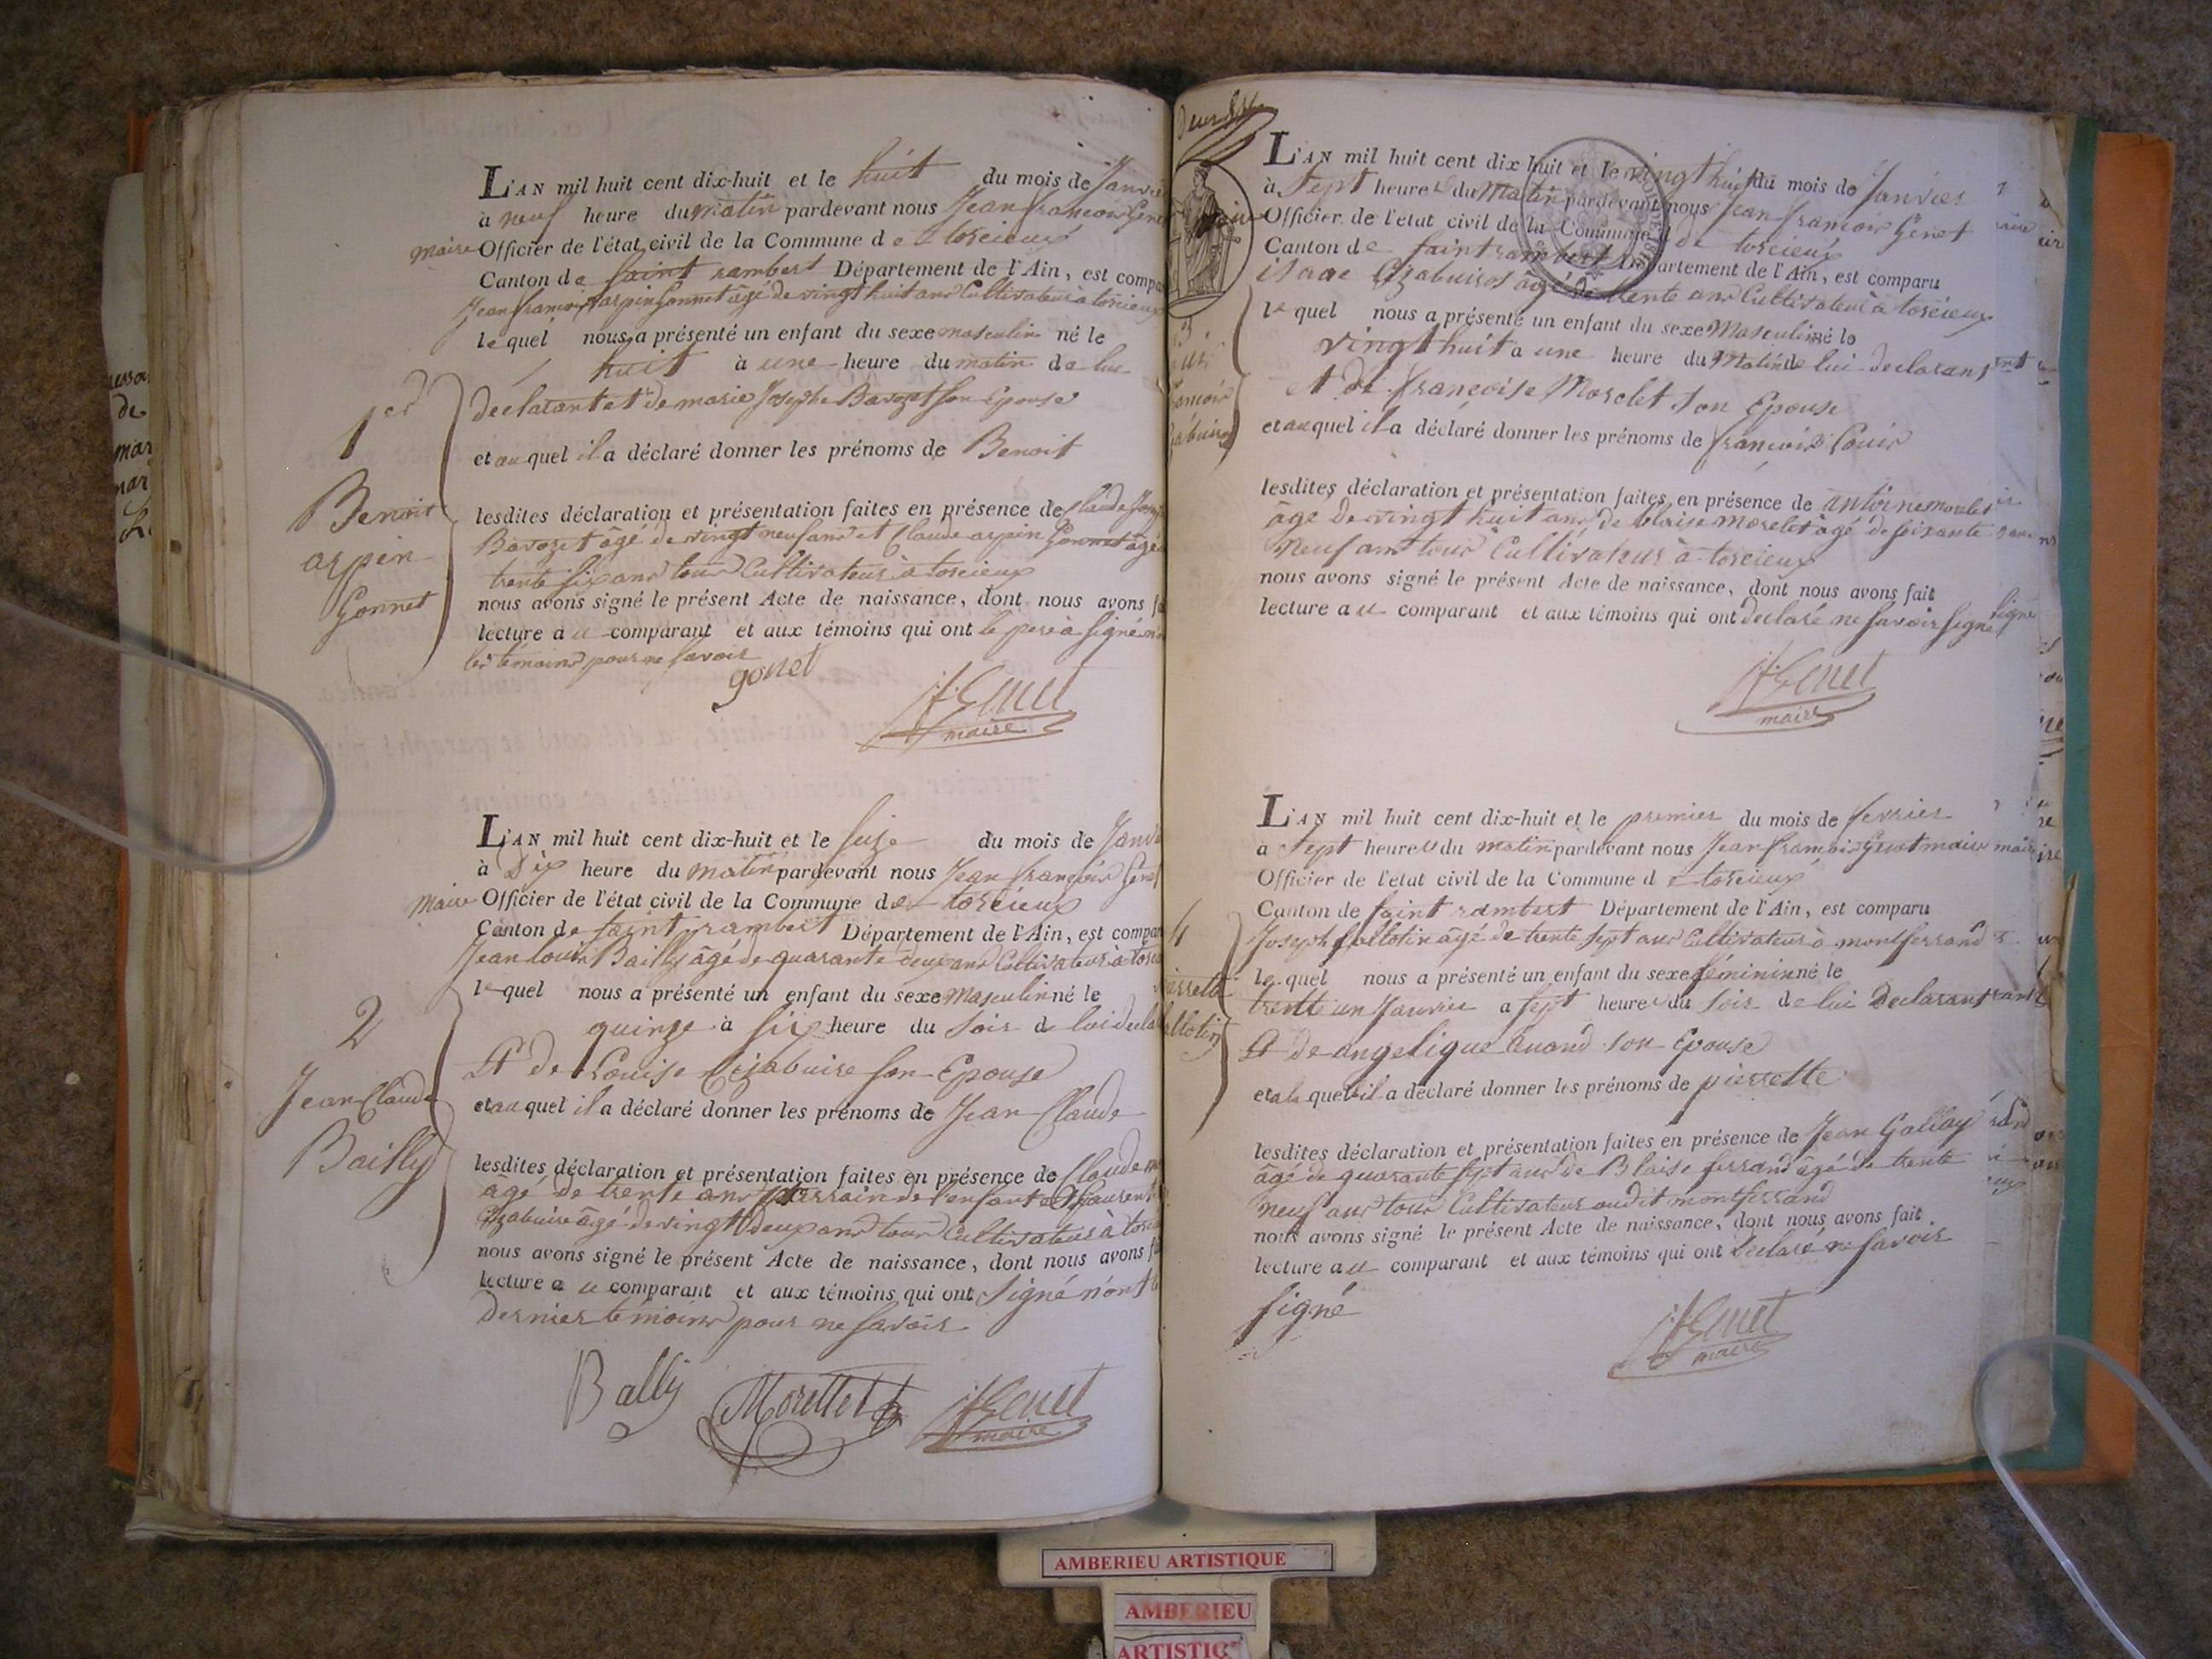 L'AN mil huit cent dix-huit et le huit du mois de Janvier
à neuf heure du matin pardevant nous Jean françois Genet
maire Officier de l'état civil de la Commune de torcieux
Canton de Saint rambert Département de l'Ain, est compa
Jean françois arpin Gonnet âgé de vingt huit ans Cultivateur à torcieux
lequel nous a présenté un enfant du sexe masculin né le
huit à une heure du matin de lui
declarant et de marie Josephe Bavozet son Epouse
et auquel il a déclaré donner les prénoms de Benoit
1er
Benoit
arpin
Gonnet
lesdites déclaration et présentation faites en présence de Claude
Bavozet âgé de vingt neuf ans et Claude arpin Gonnet âgé
trente six ans tous Cultivateurs à torcieux
nous avons signé le présent Acte de naissance, dont nous avons f
lecture au comparant et aux témoins qui ont le pere à signé
les témoins pour ne savoir
gonet
jf Genet
maire
L'AN mil huit cent dix-huit et le seize du mois de Janvi
à Dix heure du matin pardevant nous Jean françois Genet
maire Officier de l'état civil de la Commune de torcieux
Canton de saint rambert Département de l'Ain, est compar
Jean louis Bailly âgé de quarante deux ans Cultivateur à torci
lequel nous a présenté un enfant du sexe Masculin né le
quinze à six heure du soir de lui decla
Et de Louise Cizabuire son Epouse
et auquel il a déclaré donner les prénoms de Jean Claude
2
Jean Claude
Bailly
lesdites déclaration et présentation faites en présence de Claude
âgé de trente ans parrain de l'enfant et laurent
Cizabuire âgé de vingt deux ans tous Cultivateurs à torci
nous avons signé le présent Acte de naissance, dont nous avons f
lecture au comparant et aux témoins qui ont signé n'ont le
dernier témoins pour ne savoir
Bally Morellet jf Genet
maire
L'AN mil huit cent dix huit et le vingt huit du mois de Janvier
à Sept heures du Matin pardevant nous Jean françois Genet
maire Officier de l'etat civil de la Commune de torcieux
Canton de saint rambert Département de l'Ain, est comparu
isaac Cizabuire âgé de trente ans Cultivateur à torcieux
lequel nous a présenté un enfant du sexe Masculin né le
vingt huit à une heure du Matin de lui declarant
et de françoise Morelet son Epouse
et auquel il a déclaré donner les prénoms de françois Louis
lesdites déclaration et présentation faites en présence de antoine
âgé de vingt huit ans de blaise morelet âgé de soixante
Neuf ans tous Cultivateurs à torcieux
nous avons signé le présent Acte de naissance, dont nous avons fait
lecture au comparant et aux témoins qui ont declaré ne savoir signé
jf Genet
maire
L'AN mil huit cent dix-huit et le premier du mois de fevrier
à Sept heures du matin pardevant nous Jean françois Genet maire
Officier de l'etat civil de la Commune de torcieux
Canton de saint rambert Département de l'Ain, est comparu
Joseph follotin âgé de trente sept ans Cultivateur à montferrand
lequel nous a présenté un enfant du sexe féminin né le
trente un Janvier à sept heures du soir de lui Declarant
Et de angelique Quand son Epouse
et à laquelle il a déclaré donner les prénoms de pierrette
4
lesdites déclaration et présentation faites en présence de Jean Gallay
âgé de quarante sept ans de Blaise ferrand âgé de trente
neuf ans tous Cultivateurs audit montferrand
nous avons signé le présent Acte de naissance, dont nous avons fait
lecture au comparant et aux témoins qui ont declaré ne savoir
signé
jf Genet
maire
AMBERIEU ARTISTIQUE
AMBERIEU
ARTISTIQ